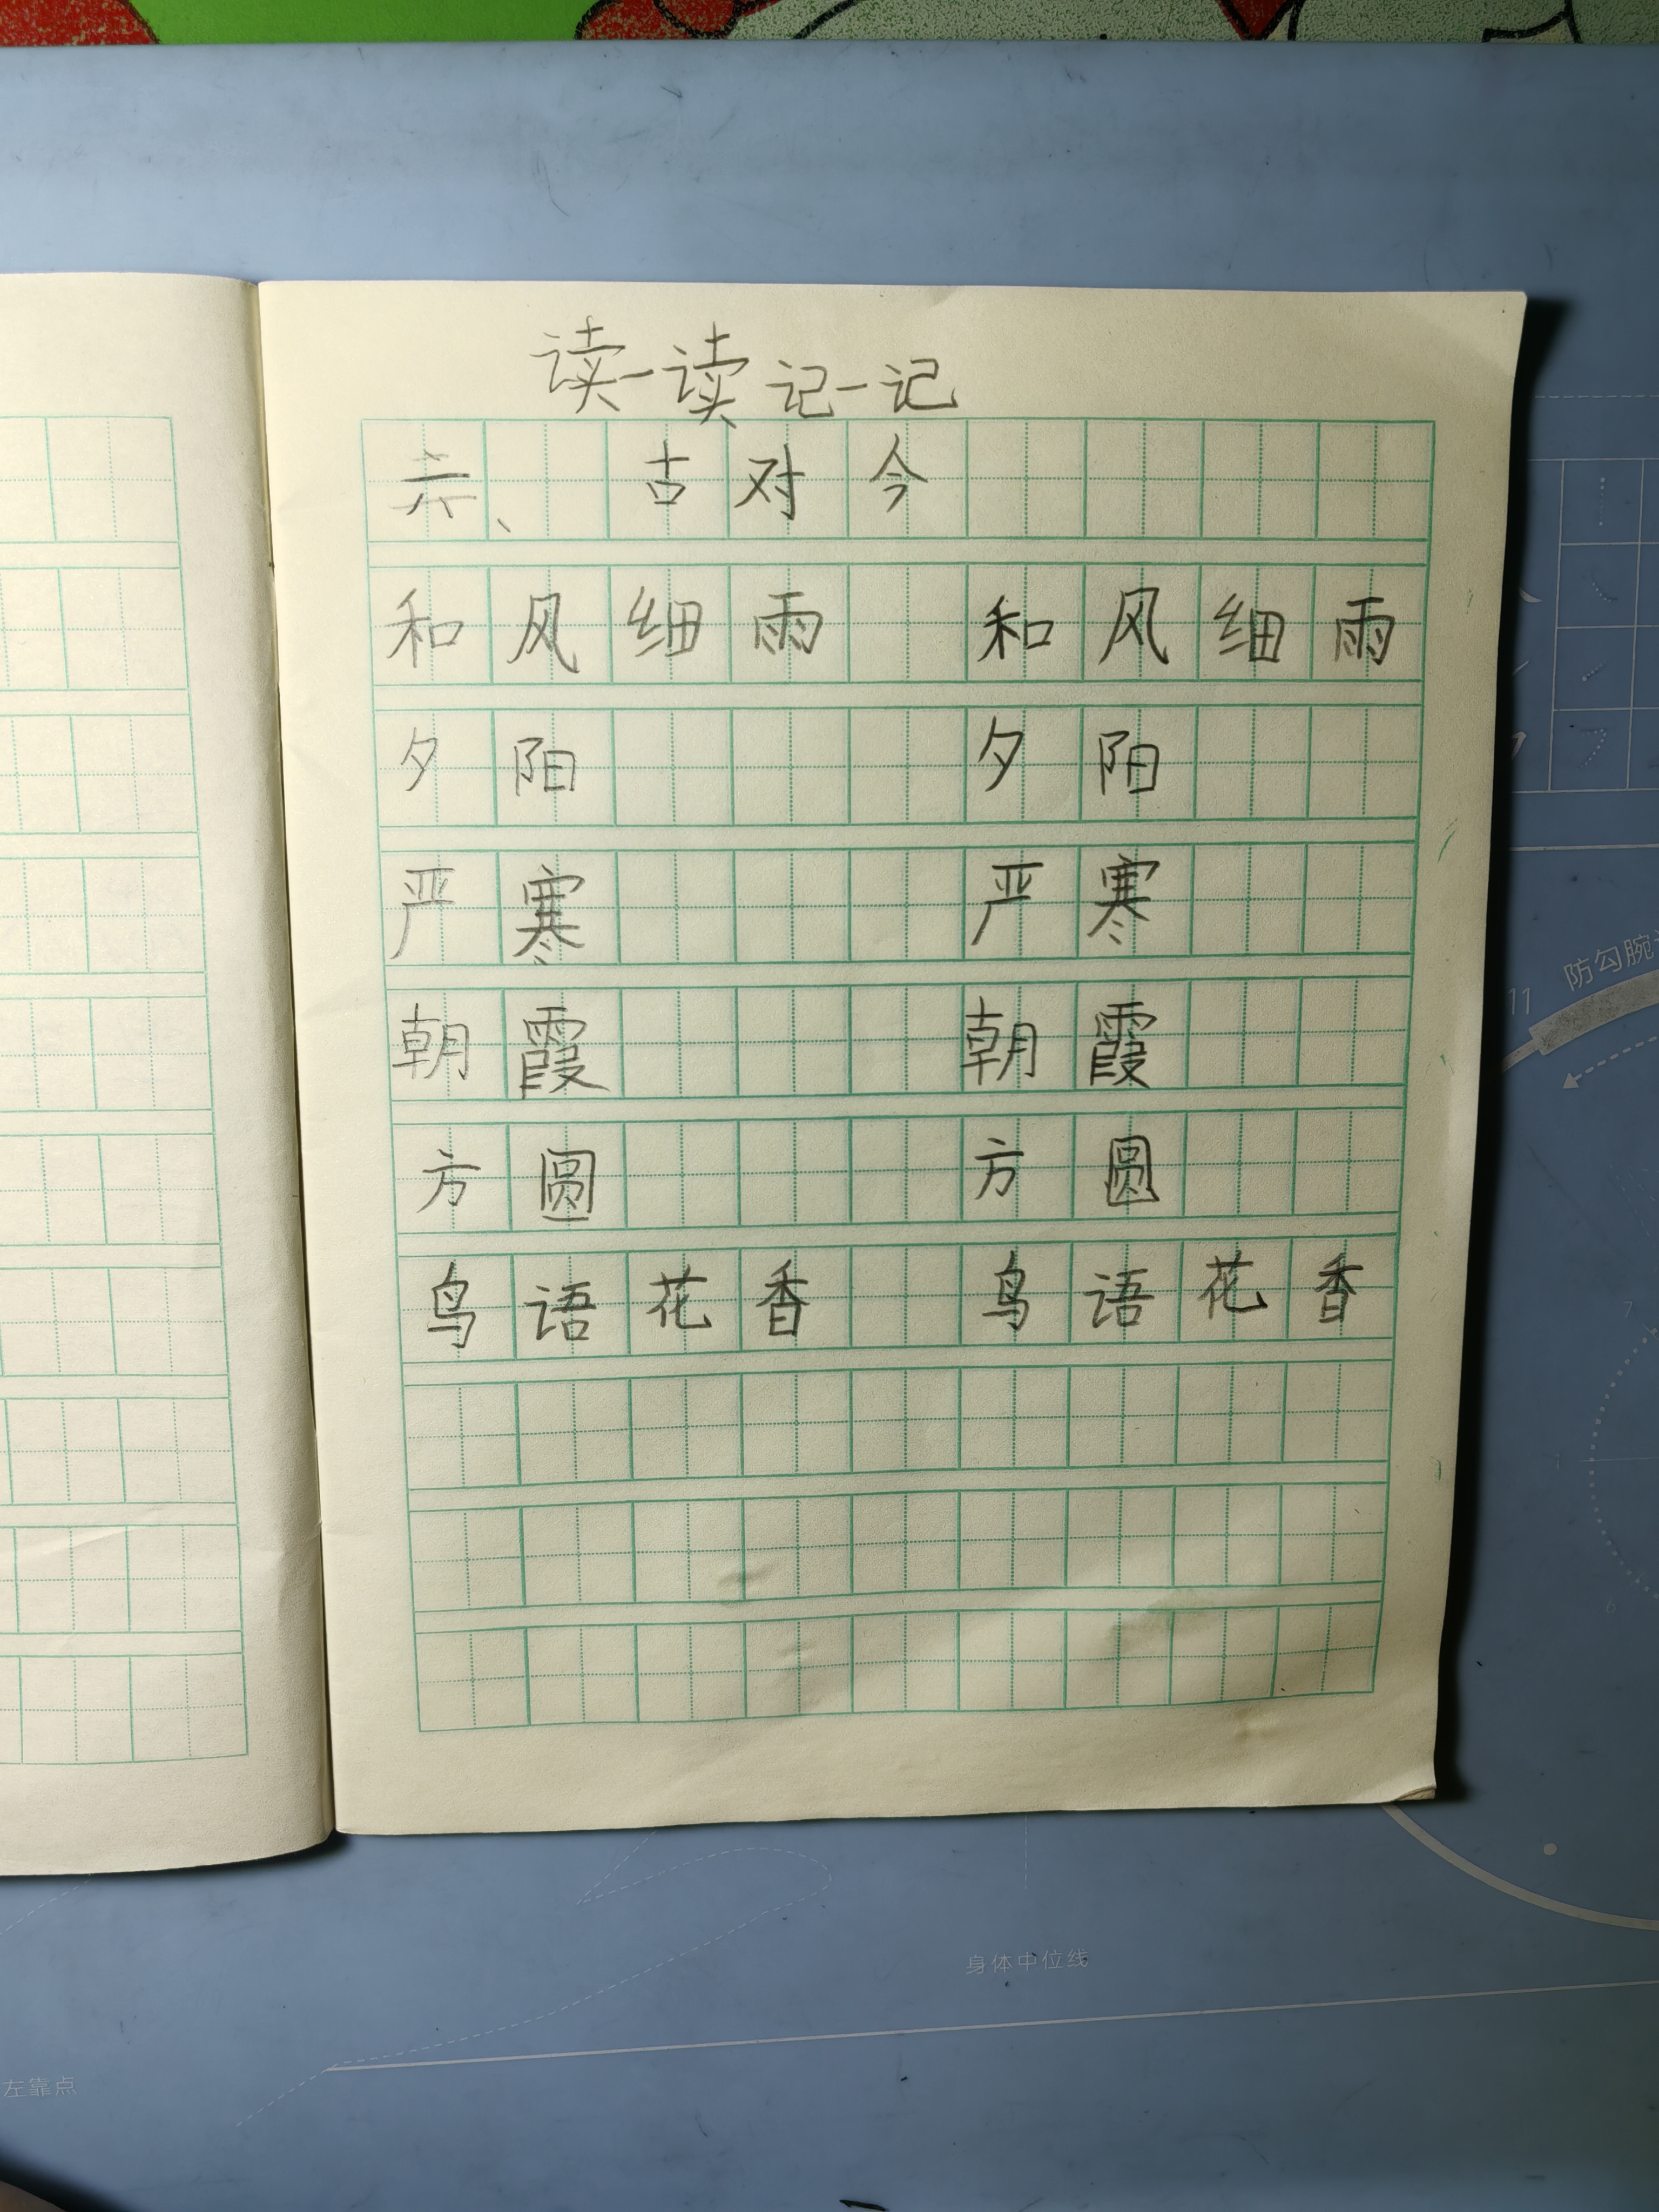 读一读 记一记
六、 古对今
和风细雨 和风细雨
夕阳 夕阳
严寒 严寒
朝霞 朝霞
方圆 方圆
鸟语花香 鸟语花香
11
防勾腕
7
身体中位线
左靠点